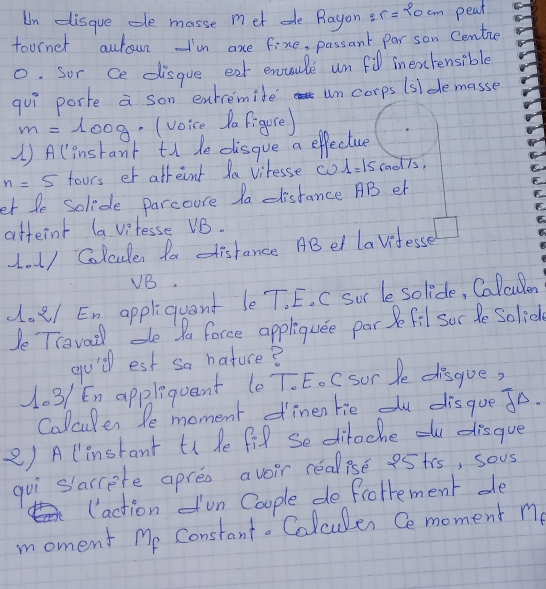 Un disque de masse M et de Rayon : r = 20 cm peut
tourner autour d'un axe fixe, passant par son centre
O. Sur ce disque est enroulé un fil inextensible
qui porte à son extrémité un corps (s) de masse
m = 100g. (voire la figure)
1) A l'instant t1 le disque a effectue
n = 5 tours et atteint la vitesse ω1=15 rad/s,
et le solide parcoure la distance AB et
atteint la vitesse VB.
1.1/ Calculer la distance AB et la vitesse
VB.
1.2/ En appliquant le T.E.C sur le solide, Calculer
le Travail de la force appliquée par le fil sur le solide
qu'il est sa nature ?
1.3/ En appliquant le T.E.C sur le disque,
Calculer le moment d'inertie du disque JΔ.
2) A l'instant t1 le fil se ditache du disque
qui s'arrête aprés avoir réalisé 25 trs, sous
l'action d'un Couple de frottement de
moment Mf Constant. Calculer Ce moment Mf